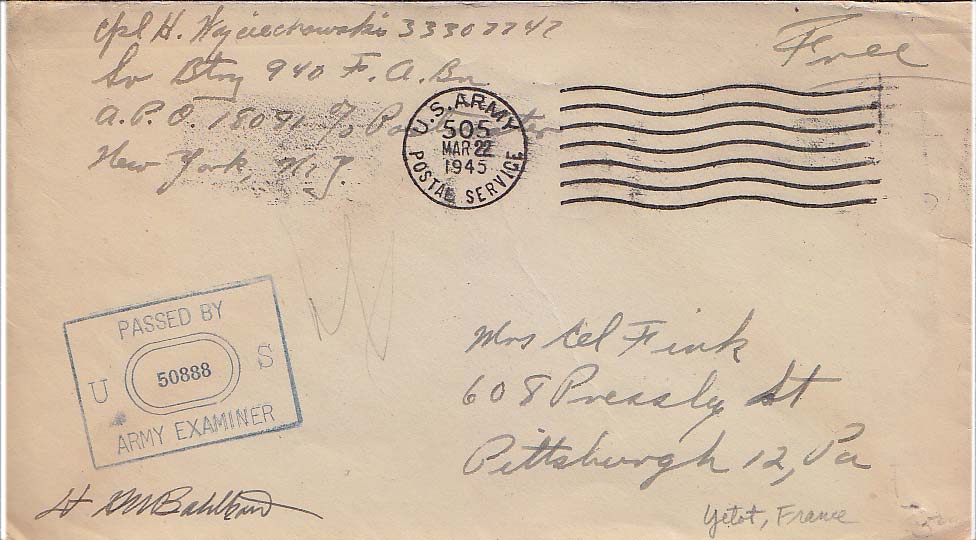 Cpl H. Wojciechowski 33307747
Sv Btry 940 F. A. Bn
A. P. O. 18091 c/o Postmaster
New York, N. Y.
Free
U.S. ARMY
505
MAR 22
1945
POSTAL SERVICE
PASSED BY
U 50888 S
ARMY EXAMINER
Mrs Cel Fink
608 Pressly St
Pittsburgh 12, Pa
Yetot, France